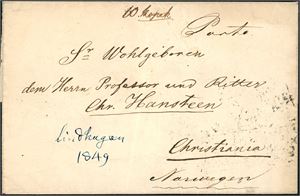 60 Kopek
Porto
Sr Wohlgeboren
dem Herrn Professor und Ritter
Chr. Hansteen
Lindhagen
1849
Christiania
Norwegen